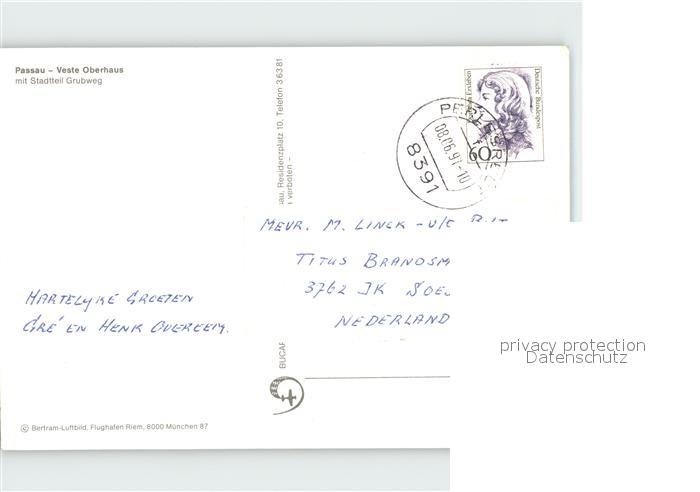 Passau – Veste Oberhaus
mit Stadtteil Grubweg
au, Residenzplatz 10, Telefon 3 63 81
verboten –
Deutsche Bundespost
60
08.06.91-10
8391
MEVR. M. LINCK - v/d
TITUS BRANDSM
3762 JK SOE
NEDERLAND
HARTELYKE GROETEN
GRÉ EN HENK OVEREEM.
BUCAR
privacy protection
Datenschutz
© Bertram-Luftbild, Flughafen Riem, 8000 München 87